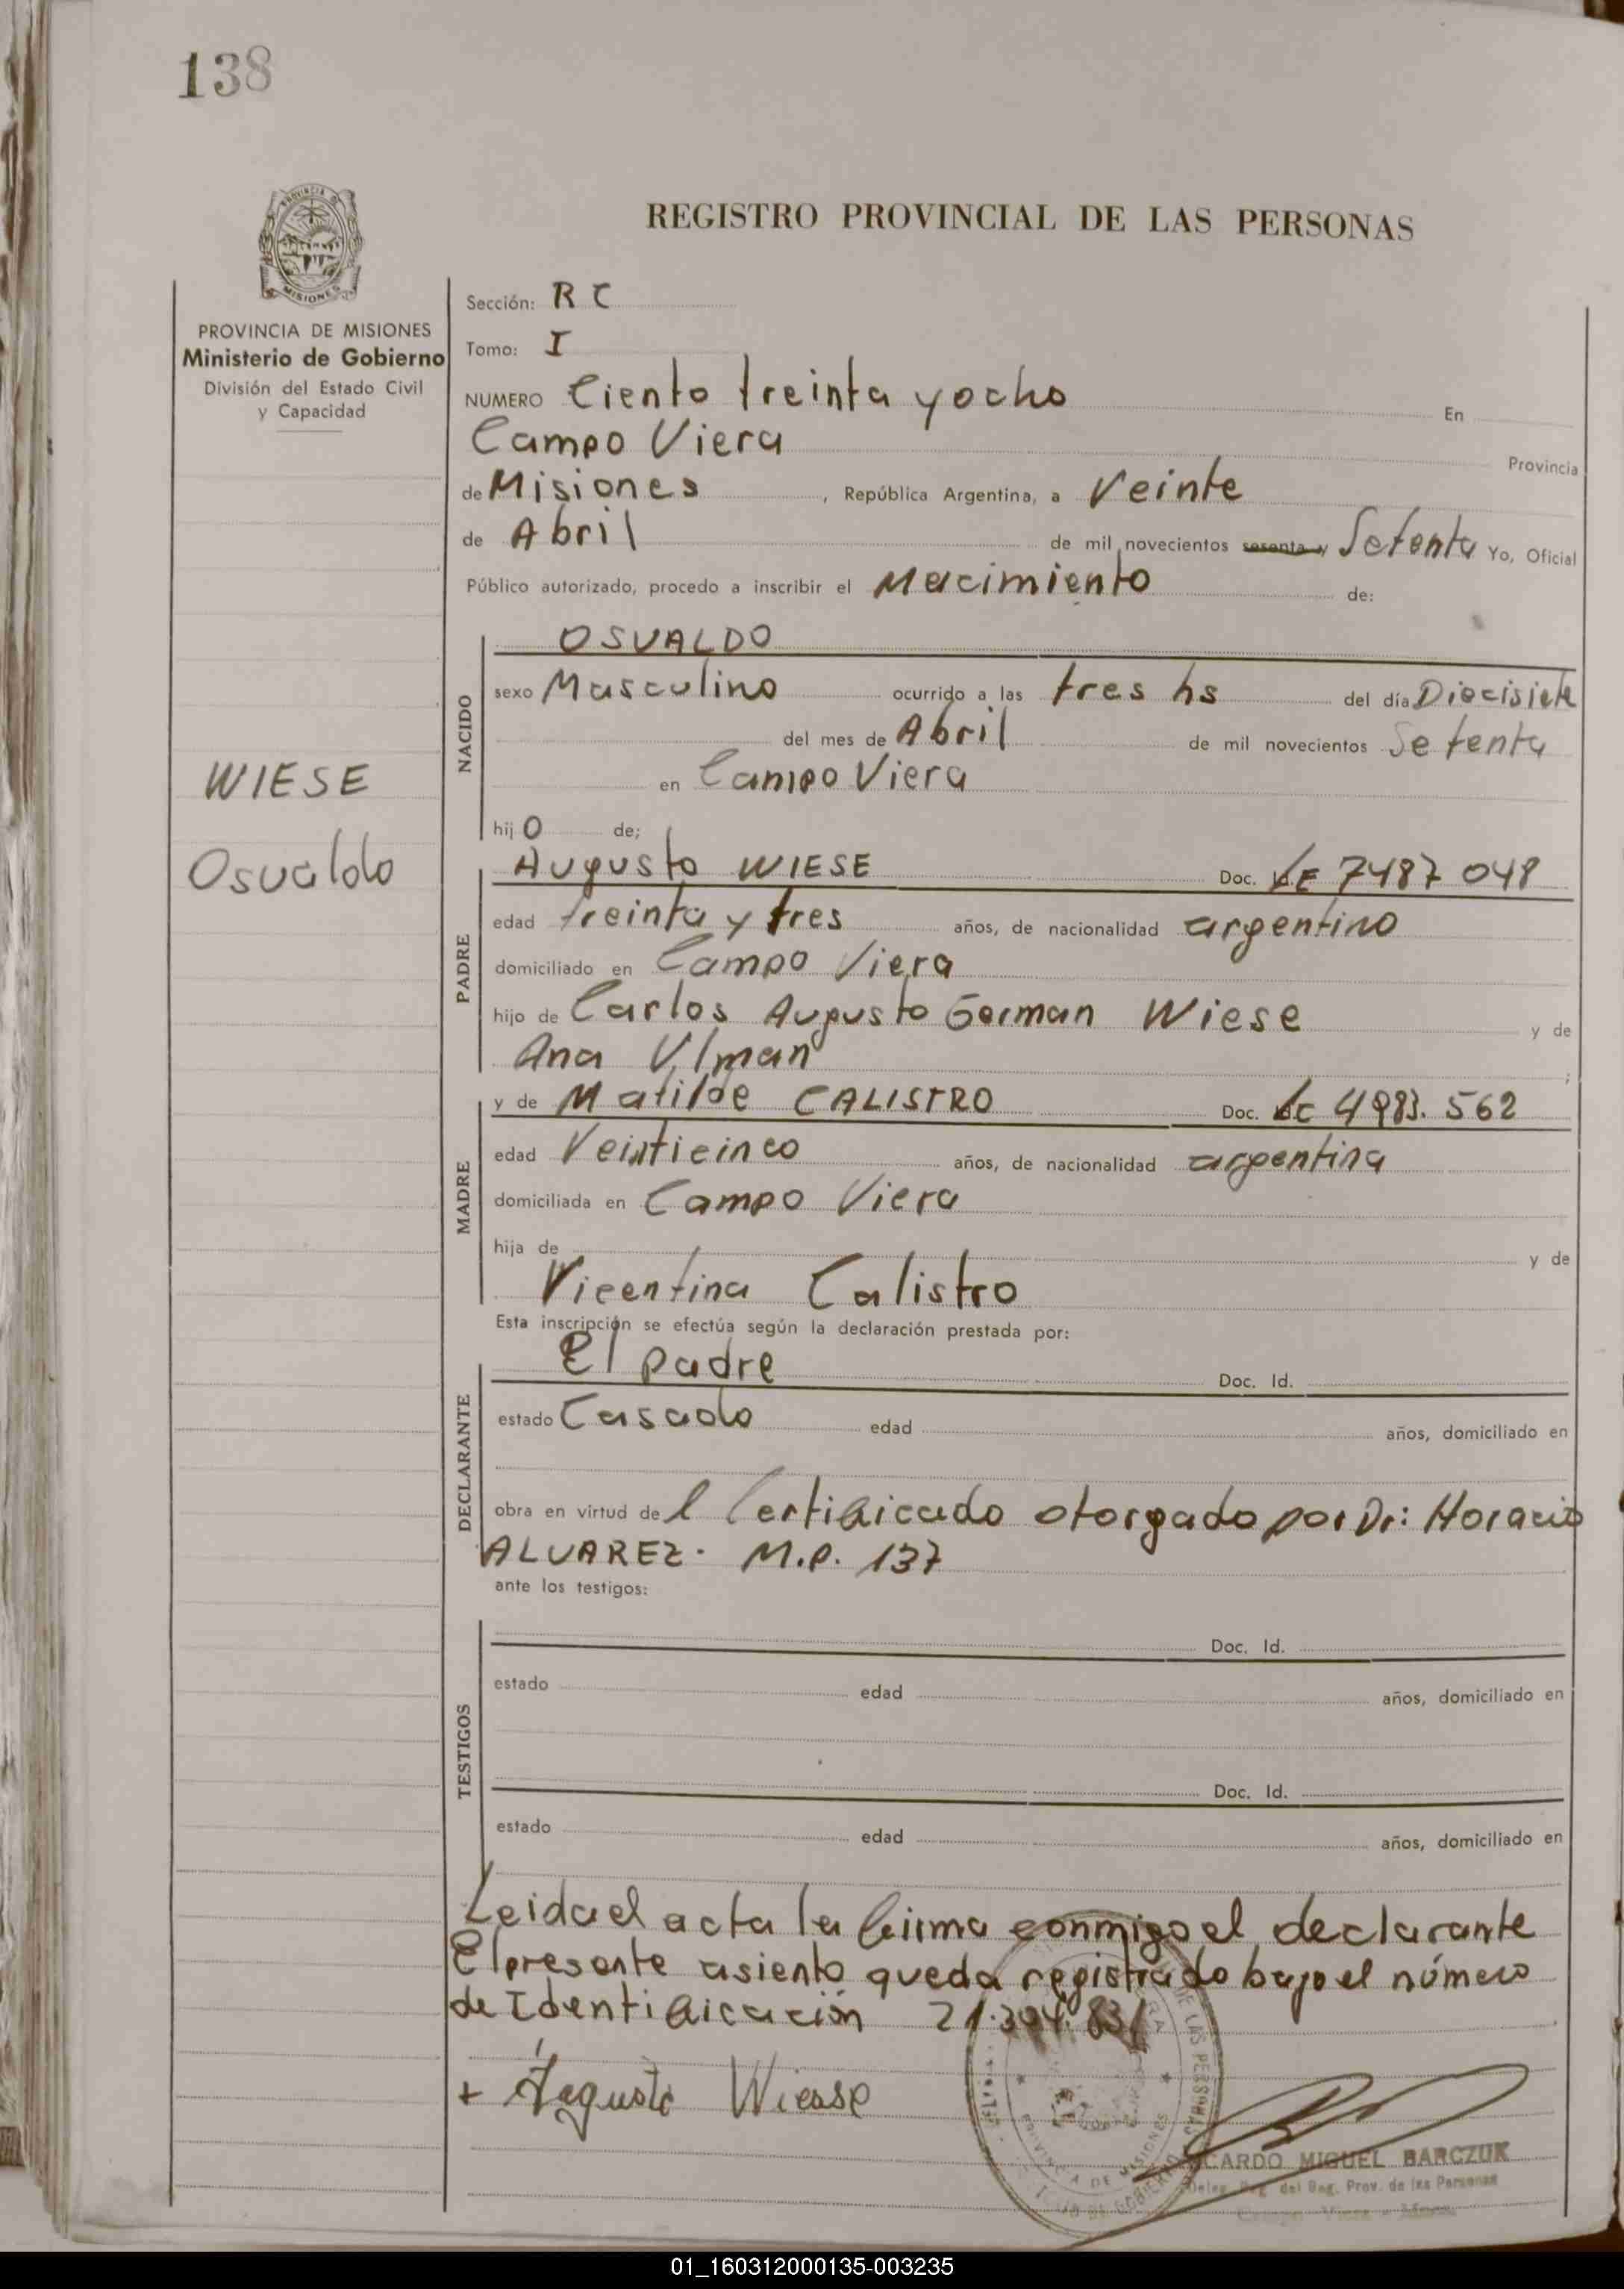 138
REGISTRO PROVINCIAL DE LAS PERSONAS
PROVINCIA DE MISIONES
Ministerio de Gobierno
División del Estado Civil
y Capacidad
WIESE
Osvaldo
Sección: R C
Tomo: I
NUMERO Ciento treinta y ocho En
Campo Viera Provincia
de Misiones, República Argentina, a Veinte
de Abril de mil novecientos sesenta y Setenta Yo, Oficial
Público autorizado, procedo a inscribir el Nacimiento de:
NACIDO
OSVALDO
sexo Masculino ocurrido a las tres hs del día Diecisiete
del mes de Abril de mil novecientos Setenta
en Campo Viera
hijo de;
PADRE
Augusto WIESE Doc. LE 7487 048
edad treinta y tres años, de nacionalidad argentino
domiciliado en Campo Viera
hijo de Carlos Augusto German Wiese y de
Ana Ulman ;
MADRE
y de Matilde CALISTRO Doc. LC 4983.562
edad Veinticinco años, de nacionalidad argentina
domiciliada en Campo Viera
hija de y de
Vicentina Calistro
Esta inscripción se efectúa según la declaración prestada por:
DECLARANTE
El padre Doc. Id.
estado Casado edad años, domiciliado en
obra en virtud del Certificado otorgado por Dr: Horacio
ALVAREZ. M.P. 137
ante los testigos:
TESTIGOS
Doc. Id.
estado edad años, domiciliado en
Doc. Id.
estado edad años, domiciliado en
Leida el acta la firma conmigo el declarante
El presente asiento queda registrado bajo el número
de Identificación 21.304.831
+ Augusto Wiesse
PROVINCIA DE MISIONES
DE LAS PERSONAS
CARDO MIGUEL BARCZUK
Deleg. Reg. del Reg. Prov. de las Personas
01_160312000135-003235